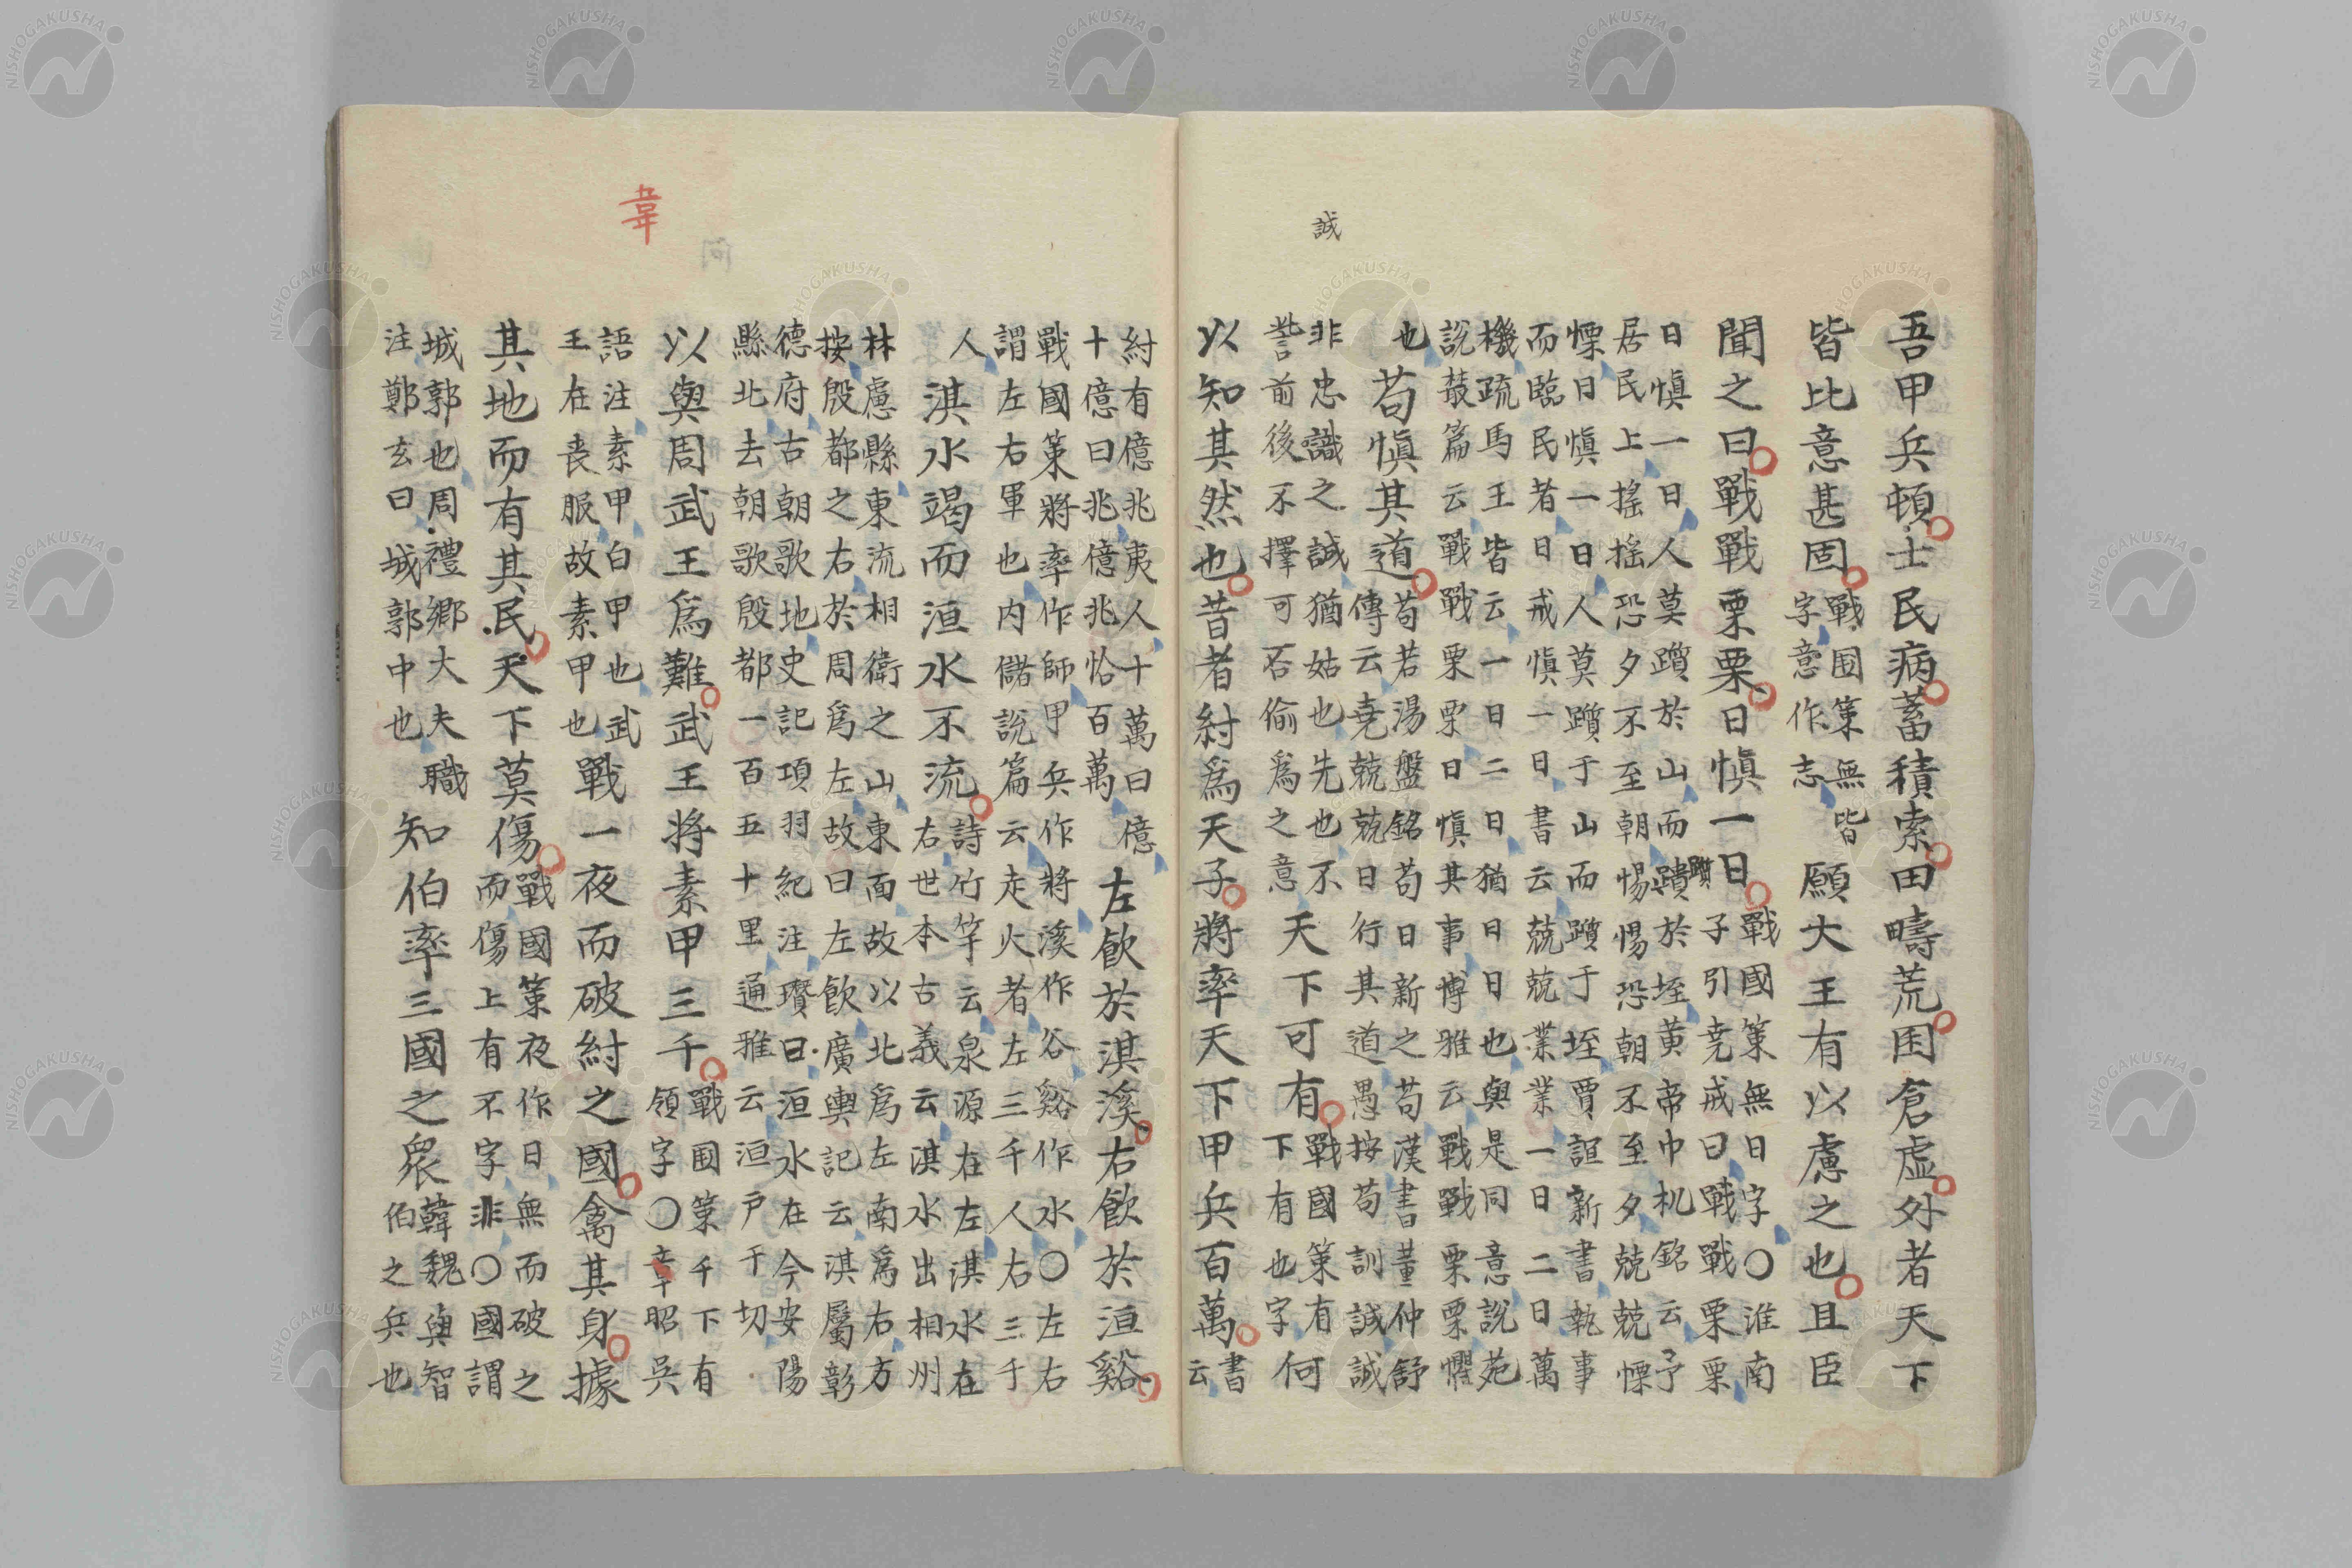 誠
吾甲兵頓士民病蓄積索田疇荒囷倉虛外者天下
皆比意甚固
戰國策無皆
字意作志
願大王有以慮之也且臣
聞之曰戰戰栗栗日愼一日
戰國策無日字〇淮南
子引堯戒曰戰戰栗栗
躓
日愼一日人莫躓於山而躓於垤黄帝巾机銘云予
居民上搖搖恐夕不至朝惕惕恐朝不至夕兢兢慄
慄日愼一日人莫躓于山而躓于垤賈誼新書執事
而臨民者日戒愼一日書云兢兢業業一日二日萬
機疏馬王皆云一日二日猶日日也與是同意說苑
說叢篇云戰戰栗栗日愼其事博雅云戰戰栗栗懼
也
苟愼其道
苟若湯盤銘苟日新之苟漢書董仲舒
傳云堯兢兢日行其道愚按苟訓誠誠
非忠識之誠猶姑也先也不
前後不擇可否偷爲之意
天下可有
戰國策有
下有也字
何
以知其然也昔者紂爲天子將率天下甲兵百萬
書
云
紂有億兆夷人十萬曰億
十億曰兆億兆恰百萬
左飲於淇溪右飲於洹谿
戰國策將率作師甲兵作將溪作谷谿作水〇左右
謂左右軍也内儲說篇云走火者左三千人右三千
人
淇水竭而洹水不流
詩竹竿云泉源在左淇水在
右世本古義云淇水出相州
林慮縣東流相衛之山東面故以北爲左南爲右方
按殷都之右於周爲左故曰左飲廣輿記云淇屬彰
德府古朝歌地史記項羽紀注瓚曰洹水在今安陽
縣北去朝歌殷都一百五十里通雅云洹戸干切
以與周武王爲難武王將素甲三千
戰国策千下有
領字〇韋昭吳
韋
語注素甲白甲也武
王在喪服故素甲也
戰一夜而破紂之國禽其身據
其地而有其民天下莫傷
戰國策夜作日無而破之
而傷上有不字非〇國謂
城郭也周禮鄉大夫職
注鄭玄曰城郭中也
知伯率三國之衆
韓魏與智
伯之兵也